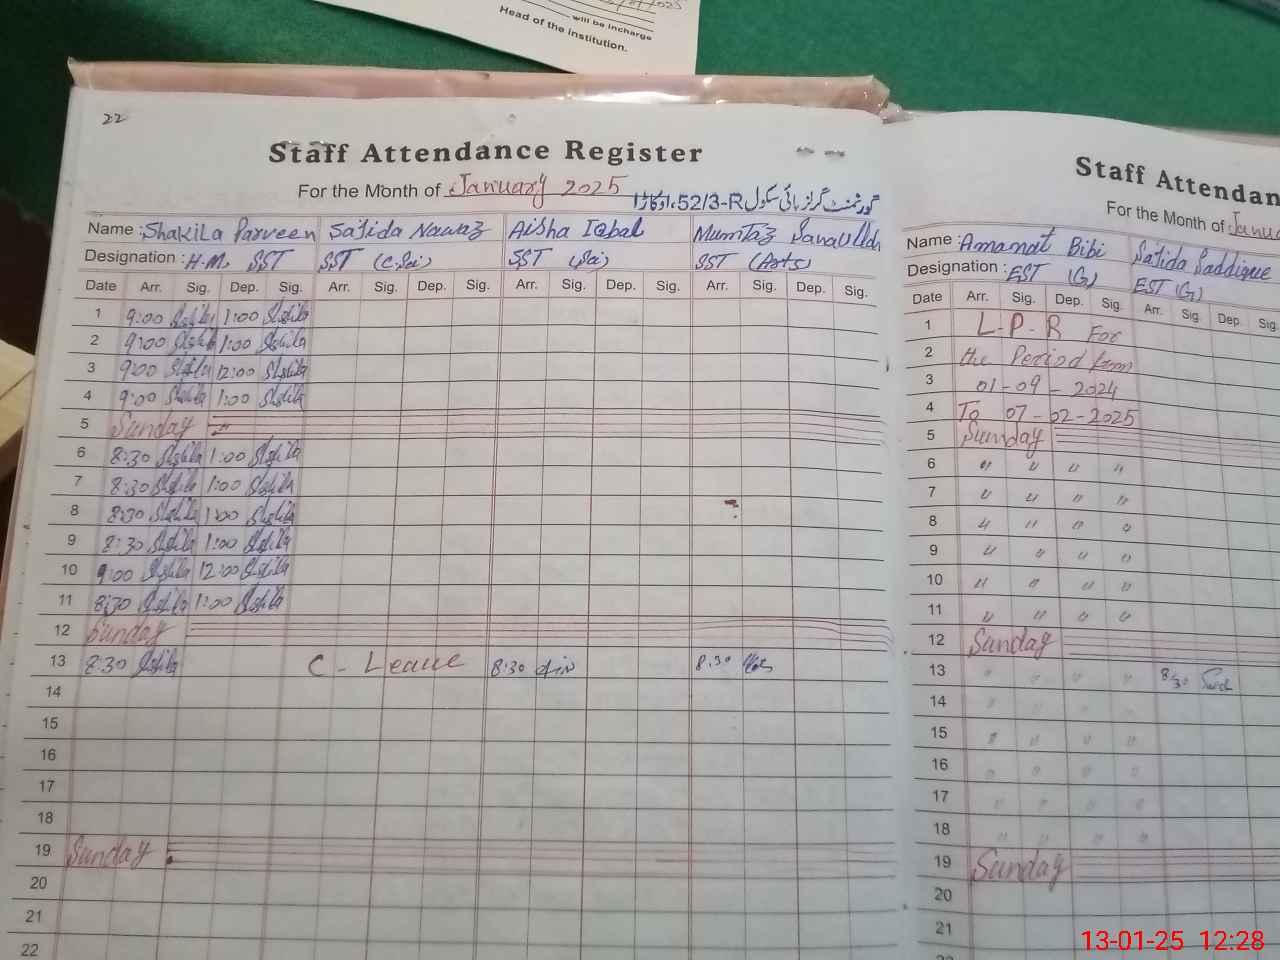 will be incharge
Head of the institution.
22
Staff Attendance Register
For the Month of January 2025
گورنمنٹ گرلز ہائی سکول 52/3-R، اوکاڑا
Name : Shakila Parveen Sajida Nawaz Aisha Iqbal Mumtaz Sanaullah
Designation : H.M, SST SST (C.Sci) SST (Sci) SST (Arts)
Date Arr. Sig. Dep. Sig. Arr. Sig. Dep. Sig. Arr. Sig. Dep. Sig. Arr. Sig. Dep. Sig.
1 9:00 Shkila 1:00 Shkila
2 9:00 Shkila 1:00 Shkila
3 9:00 Shkila 12:00 Shkila
4 9:00 Shkila 1:00 Shkila
5 Sunday
6 8:30 Shkila 1:00 Shkila
7 8:30 Shkila 1:00 Shkila
8 8:30 Shkila 1:00 Shkila
9 8:30 Shkila 1:00 Shkila
10 9:00 Shkila 12:00 Shkila
11 8:30 Shkila 1:00 Shkila
12 Sunday
13 8:30 Shkila C - Leave 8:30 8:30
14
15
16
17
18
19 Sunday
20
21
22
Staff Attendan
For the Month of Janu
Name : Amanat Bibi Sajida Saddique
Designation : EST (G) EST (G)
Date Arr. Sig. Dep. Sig. Arr. Sig. Dep. Sig.
1 L-P-R For
2 the Period from
3 01-09-2024
4 To 07-02-2025
5 Sunday
6 " " " "
7 " " " "
8 " " " "
9 " " " "
10 " " " "
11 " " " "
12 Sunday
13 " " " " 8:30
14 " " " "
15 " " " "
16 " " " "
17 " " " "
18 " " " "
19 Sunday
20
21
13-01-25 12:28